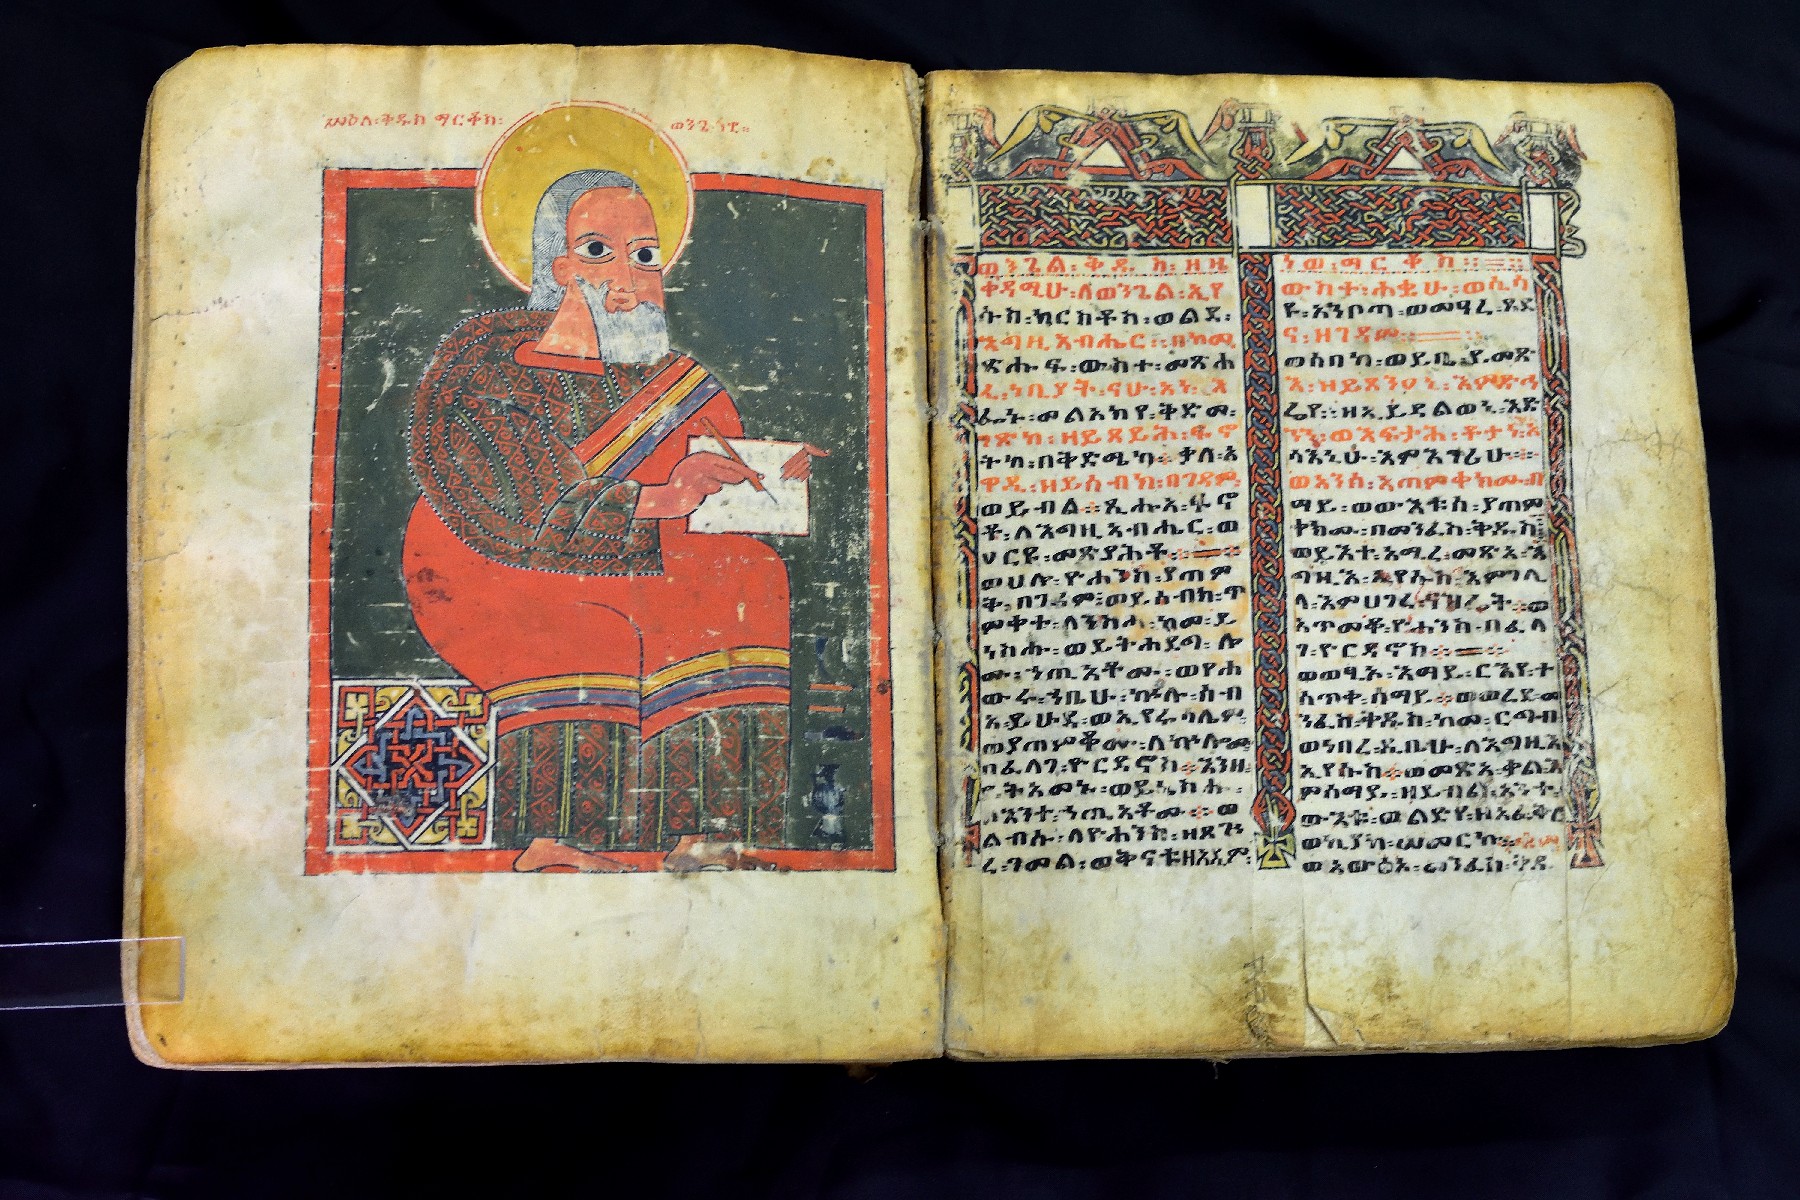 ሥዕለ፡ቅዱስ ማርቆስ፡ ወንጌላዊ።
ወንጌል፡ቅዱስ፡ዘዜ
ቀዳሚሁ፡ለወንጌል፡ኢየ
ሱስ፡ክርስቶስ፡ወልደ፡
እግዚአብሔር፡በከመ፡
ጽሑፍ፡ውስተ፡መጽሐ
ፈ፡ነቢያት፡ናሁ፡አነ፡እ
ፌኑ፡መልአክየ፡ቅድመ፡
ገጽከ፡ዘይጸይሕ፡ፍኖ
ትከ፡በቅድሜከ፡ቃለ፡አ
ዋዲ፡ዘይሰብክ፡በገዳም፡
ወይብል፡ጺሑአ፡ፍኖ
ቶ፡ለእግዚአብሔር፡ወ
ዐርዩ፡መጽያሕቶ፡
ወሀሎ፡ዮሐንስ፡ያጠም
ቅ፡በገዳም፡ወይሰብክ፡ጥ
ምቀተ፡ለንስሓ፡ከመ፡ይ
ነስሑ፡ወይትሐደግ፡ሎ
ሙ፡ኀጢአቶሙ፡ወየሐ
ውሩ፡ኀቤሁ፡ኵሉ፡ሰብ
አ፡ይሁዳ፡ወኢየሩሳሌም፡
ወያጠምቆሙ፡ለኵሎሙ
በፈለገ፡ዮርዳኖስ፡እንዘ
ይትአመኑ፡ወይኔስሑ፡
እንተ፡ኀጢአቶሙ፡ወ
ልብሱ፡ለዮሐንስ፡ዘጸጕ
ረ፡ገመል፡ወቅናቱ፡ዘአዲም፡
ነወ፡ማርቆስ፡
ውስተ፡ሐቌሁ፡ወሲሳ
ዩ፡አንቦጣ፡ወመዓረ፡ጸደ
ና፡ዘገዳም፡
ወሰበከ፡ወይቤ፡ይመጽ
እ፡ዘይጸንዐኒ፡እምድኅ
ሬየ፡ዘኢይደልወኒ፡እድ
ንን፡ወእፍታሕ፡ቶታነ፡አ
ሳእኒሁ፡እምእግሪሁ፡
ወአንሰ፡አጠምቀክሙ፡በ
ማይ፡ወውእቱሰ፡ያጠም
ቀክሙ፡በመንፈስ፡ቅዱስ፡
ወይእተ፡አሚረ፡መጽአ፡እ
ግዚእ፡ኢየሱስ፡እምገሊ
ላ፡እምሀገረ፡ናዝሬት፡ወ
አጥመቆ፡ዮሐንስ፡በፈለ
ገ፡ዮርዳኖስ፡
ወወፂኦ፡እማይ፡ርእየ፡ተ
ሰጥቀ፡ሰማይ፡ወወረደ፡መ
ንፈስ፡ቅዱስ፡ከመ፡ርግብ
ወነበረ፡ዲቤሁ፡ለእግዚእ
ኢየሱስ፡ወመጽአ፡ቃል፡እ
ምሰማይ፡ዘይብል፡አንተ፡
ውእቱ፡ወልድየ፡ዘአፈቅር
ወኪያከ፡ሠመርኩ፡
ወአውፅኦ፡መንፈስ፡ቅዱ